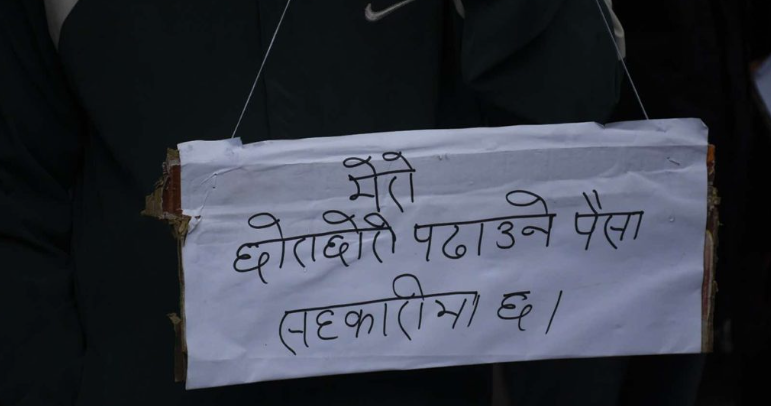 मेरो
छोराछोरी पढाउने पैसा
सहकारीमा छ।